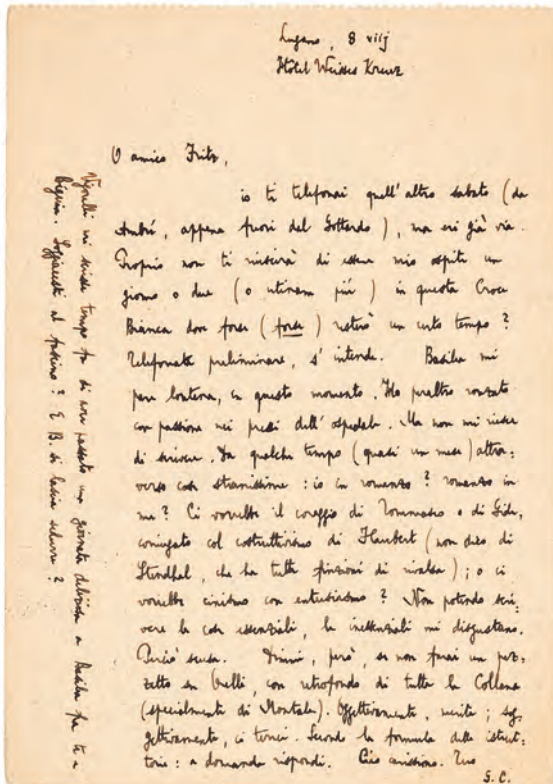 Lugano, 8 viij
Hôtel Weisses Kreuz
O amico Fritz,
io ti telefonai quell'altro sabato (da
Ambrí, appena fuori del Gottardo), ma eri già via.
Proprio non ti riuscirà di essere mio ospite un
giorno o due (o utinam piú) in questa Croce
Bianca dove forse (forse) resterò un certo tempo?
Telefonata preliminare, s'intende. Basilea mi
pare lontana, in questo momento. Ho peraltro ronzato
con passione nei pressi dell'ospedale. Ma non mi riesce
di scrivere. Da qualche tempo (quasi un mese) attra-
verso cose stranissime: io in romanzo? romanzo in
me? Ci vorrebbe il coraggio di Tommaseo o di Gide,
coniugato col costruttivismo di Flaubert (non dico di
Stendhal, che ha tutte finzioni di rivalsa); o ci
vorrebbe cinismo con entusiasmo? Non potendo scri-
vere le cose essenziali, le inessenziali mi disgustano.
Perciò scusa. Dimmi, però, se non farai un pez-
zetto su Grelli, con retrofondo di tutta la Collana
(specialmente di Montale). Oggettivamente, merita; sog-
gettivamente, ci tengo. Secondo la formula delle istrut-
torie: a domanda rispondi. Ciao carissimo. Tuo
G. C.
Vigorelli mi scrisse tempo fa di aver passato una giornata deliziosa a Basilea fra te e
Bigiaretti al fascino? E B. si lascia sedurre?